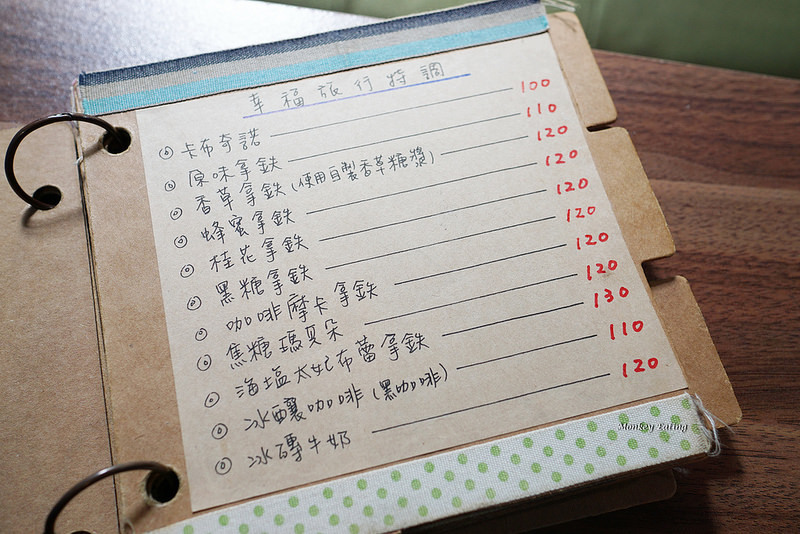 幸福旅行特調
◎ 卡布奇諾 100
◎ 原味拿鉄 110
◎ 香草拿鉄(使用自製香草糖漿) 120
◎ 蜂蜜拿鉄 120
◎ 桂花拿鉄 120
◎ 黑糖拿鉄 120
◎ 咖啡摩卡拿鉄 120
◎ 焦糖瑪其朵 120
◎ 海塩太妃布蕾拿鉄 130
◎ 冰釀咖啡(黑咖啡) 110
◎ 冰磚牛奶 120
Monkey Eating